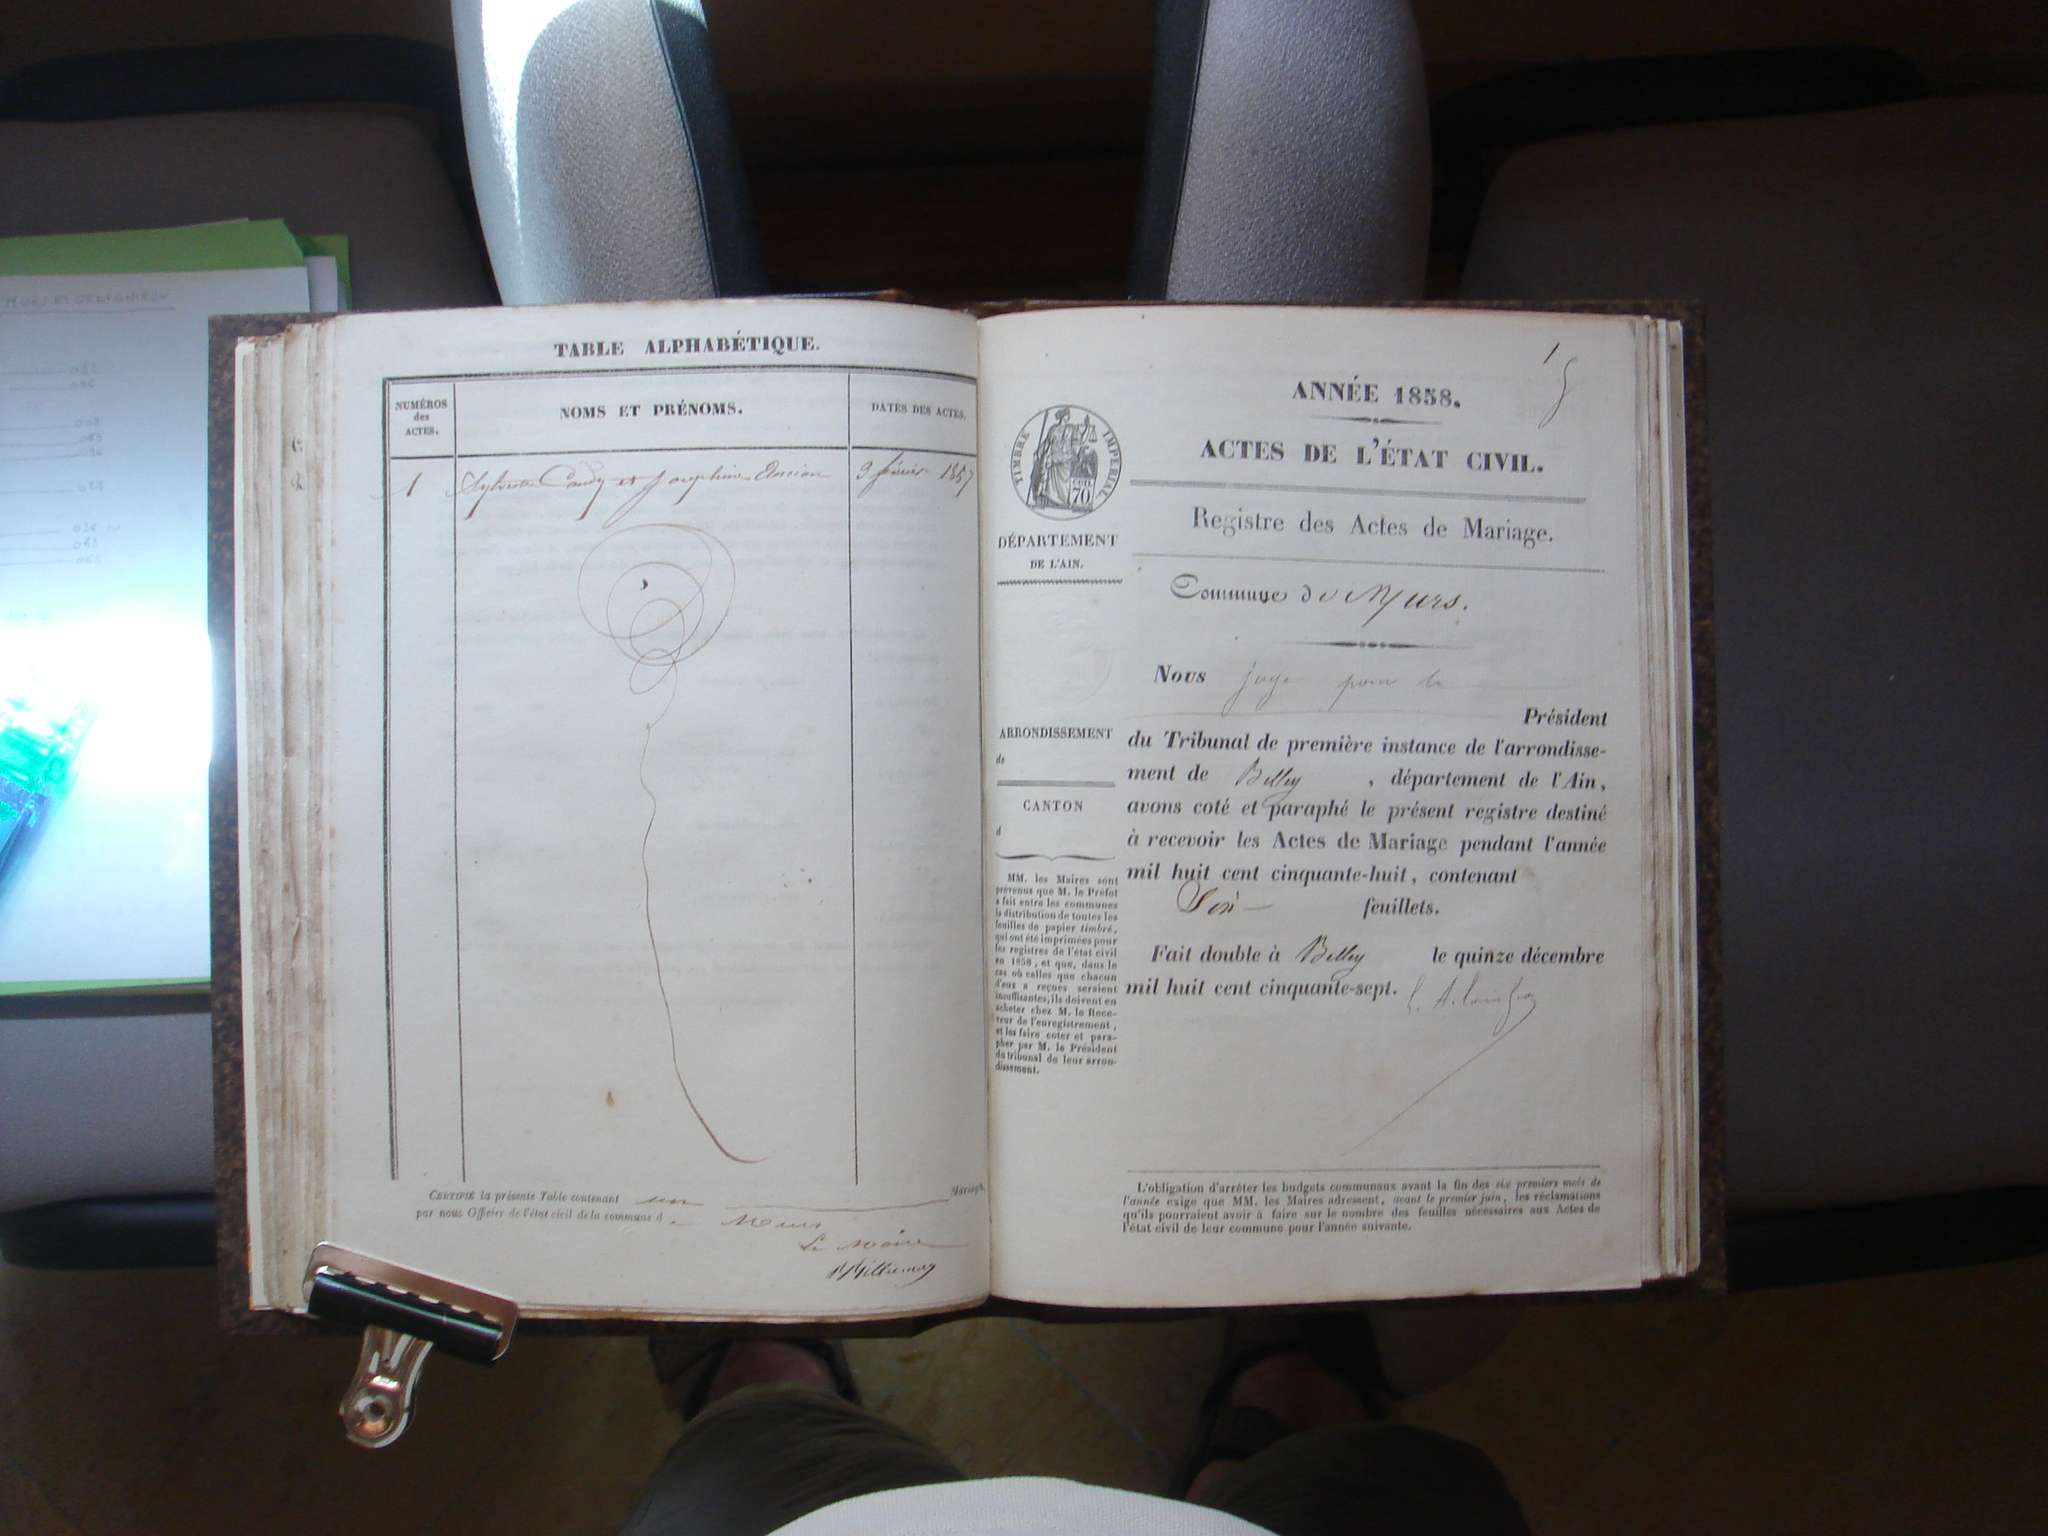 TABLE ALPHABÉTIQUE.
NUMÉROS
des
ACTES.
NOMS ET PRÉNOMS.
DATES DES ACTES.
1 Sylvestre Caudy et Josephine 9 février 1857
CERTIFIÉ la présente Table contenant un Mariage
par nous Officier de l'état civil de la commune d e Murs
Le Maire
ANNÉE 1858.
1
ACTES DE L'ÉTAT CIVIL.
TIMBRE IMPÉRIAL
70
Registre des Actes de Mariage.
DÉPARTEMENT
DE L'AIN.
Commune de Murs.
Nous juge pour le
Président
du Tribunal de première instance de l'arrondisse-
ment de Belley , département de l'Ain,
avons coté et paraphé le présent registre destiné
à recevoir les Actes de Mariage pendant l'année
mil huit cent cinquante-huit, contenant
feuillets.
Fait double à Belley le quinze décembre
mil huit cent cinquante-sept.
ARRONDISSEMENT
de
CANTON
d
MM. les Maires sont
prévenus que M. le Préfet
a fait entre les communes
la distribution de toutes les
feuilles de papier timbré,
qui ont été imprimées pour
les registres de l'état civil
en 1858, et que, dans le
cas où celles que chacun
d'eux a reçues seraient
insuffisantes, ils doivent en
acheter chez M. le Rece-
veur de l'enregistrement,
et les faire coter et para-
pher par M. le Président
du tribunal de leur arron-
dissement.
L'obligation d'arrêter les budgets communaux avant la fin des six premiers mois de
l'année exige que MM. les Maires adressent, avant le premier juin, les réclamations
qu'ils pourraient avoir à faire sur le nombre des feuilles nécessaires aux Actes de
l'état civil de leur commune pour l'année suivante.